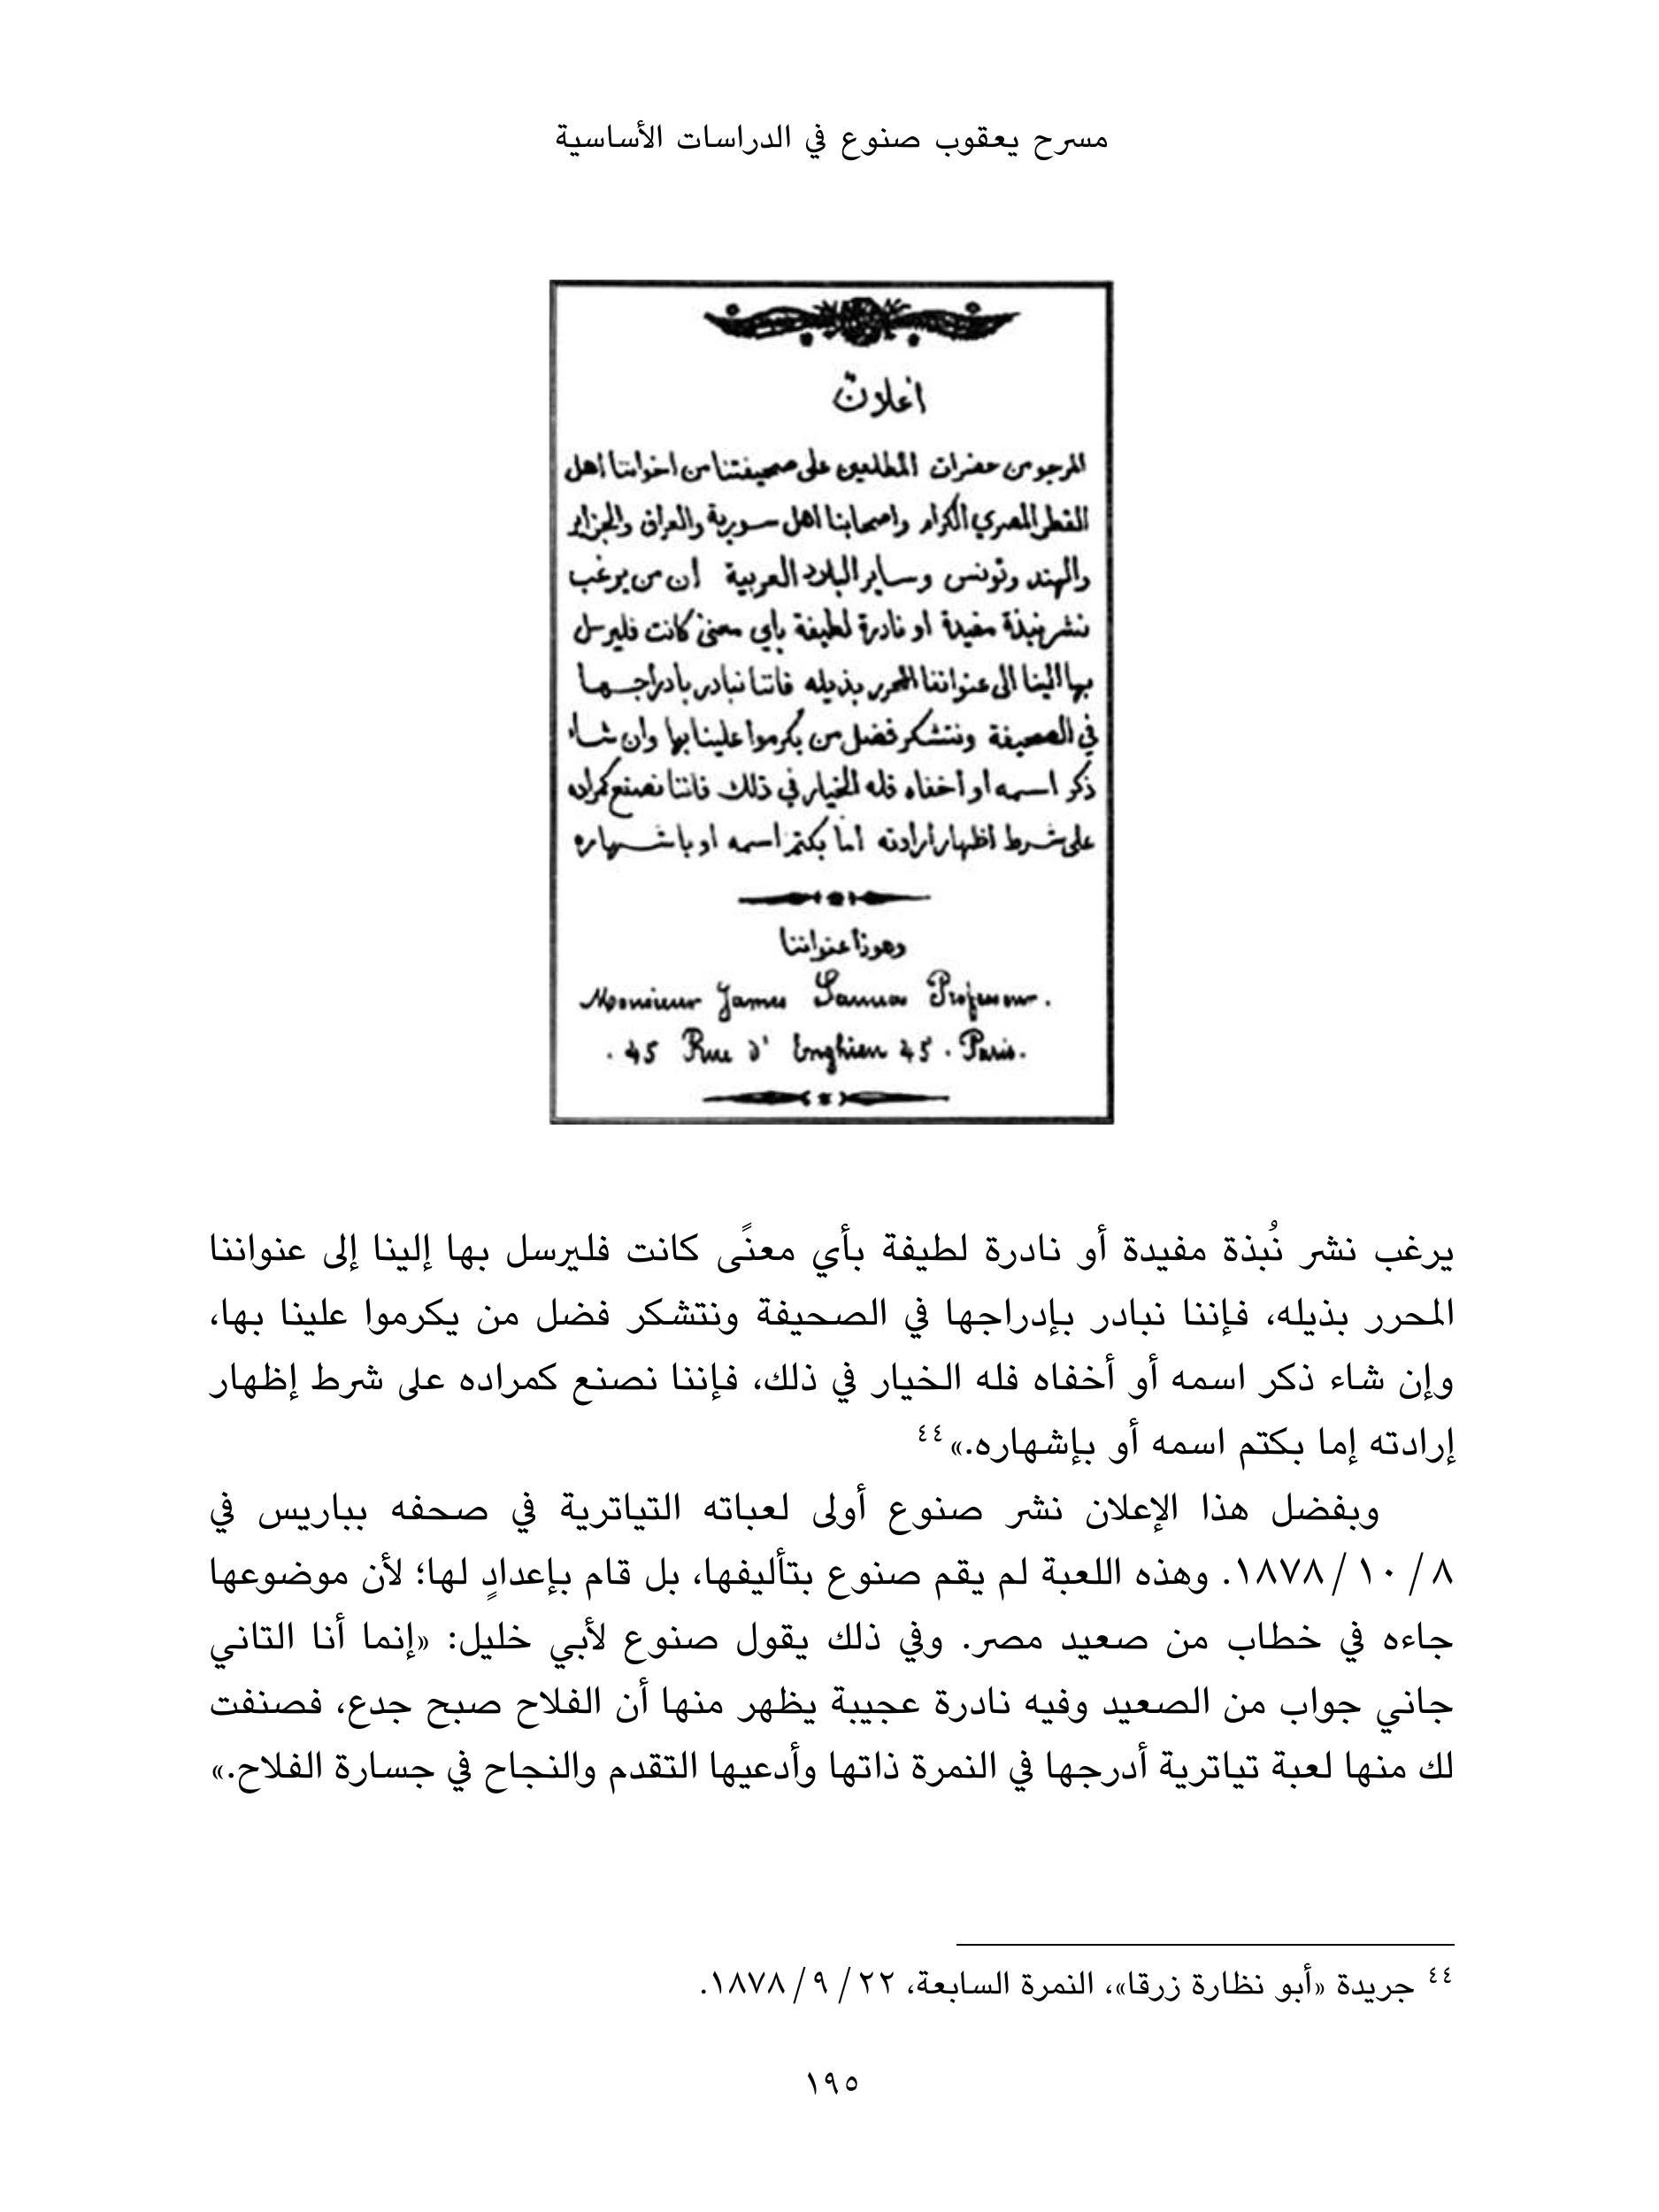 مسرح يعقوب صنوع في الدراسات الأساسية
اعلان
المرجو من حضرات المطلعين على صحيفتنا من اخواننا اهل
القطر المصري الكرام واصحابنا اهل سورية والعراق والجزاير
والهند وتونس وساير البلاد العربية ان من يرغب
نشر نبذة مفيدة او نادرة لطيفة باي معنى كانت فليرسل
بها الينا الى عنواننا المحرر بذيله فاننا نبادر بادراجها
في الصحيفة ونتشكر فضل من يكرموا علينا بها وان شاء
ذكر اسمه او اخفاه فله الخيار في ذلك فاننا نصنع كمراده
على شرط اظهار ارادته اما بكتم اسمه او باشهاره
وهوذا عنواننا
Monsieur James Sanua Professeur.
. 45 Rue d' Enghien 45 . Paris.
يرغب نشر نُبذة مفيدة أو نادرة لطيفة بأي معنًى كانت فليرسل بها إلينا إلى عنواننا
المحرر بذيله، فإننا نبادر بإدراجها في الصحيفة ونتشكر فضل من يكرموا علينا بها،
وإن شاء ذكر اسمه أو أخفاه فله الخيار في ذلك، فإننا نصنع كمراده على شرط إظهار
إرادته إما بكتم اسمه أو بإشهاره.»٤٤
وبفضل هذا الإعلان نشر صنوع أولى لعباته التياترية في صحفه بباريس في
٨ / ١٠ / ١٨٧٨. وهذه اللعبة لم يقم صنوع بتأليفها، بل قام بإعدادٍ لها؛ لأن موضوعها
جاءه في خطاب من صعيد مصر. وفي ذلك يقول صنوع لأبي خليل: «إنما أنا التاني
جاني جواب من الصعيد وفيه نادرة عجيبة يظهر منها أن الفلاح صبح جدع، فصنفت
لك منها لعبة تياترية أدرجها في النمرة ذاتها وأدعيها التقدم والنجاح في جسارة الفلاح.»
٤٤ جريدة «أبو نظارة زرقا»، النمرة السابعة، ٢٢ / ٩ / ١٨٧٨.
١٩٥